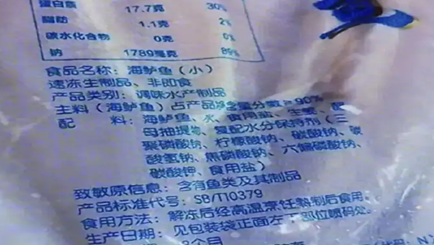 蛋白质 17.7克 30%
脂肪 1.1克 2%
碳水化合物 0克 0%
钠 1789毫克 89%
食品名称：海鲈鱼（小）
速冻生制品、非即食
产品类别：调味水产制品
主料（海鲈鱼）占产品净含量分数≥90%
配 料：海鲈鱼、水、食用盐、生姜、酵
母抽提物、复配水分保持剂（三
聚磷酸钠、柠檬酸钠、碳酸钠、碳
酸氢钠、焦磷酸钠、六偏磷酸钠、
碳酸钾、食用盐）
致敏原信息：含有鱼类及其制品
产品标准代号：SB/T10379
食用方法：解冻后经高温烹饪熟制后食用。
生产日期：见包装袋正面左下部位喷码处。
个月